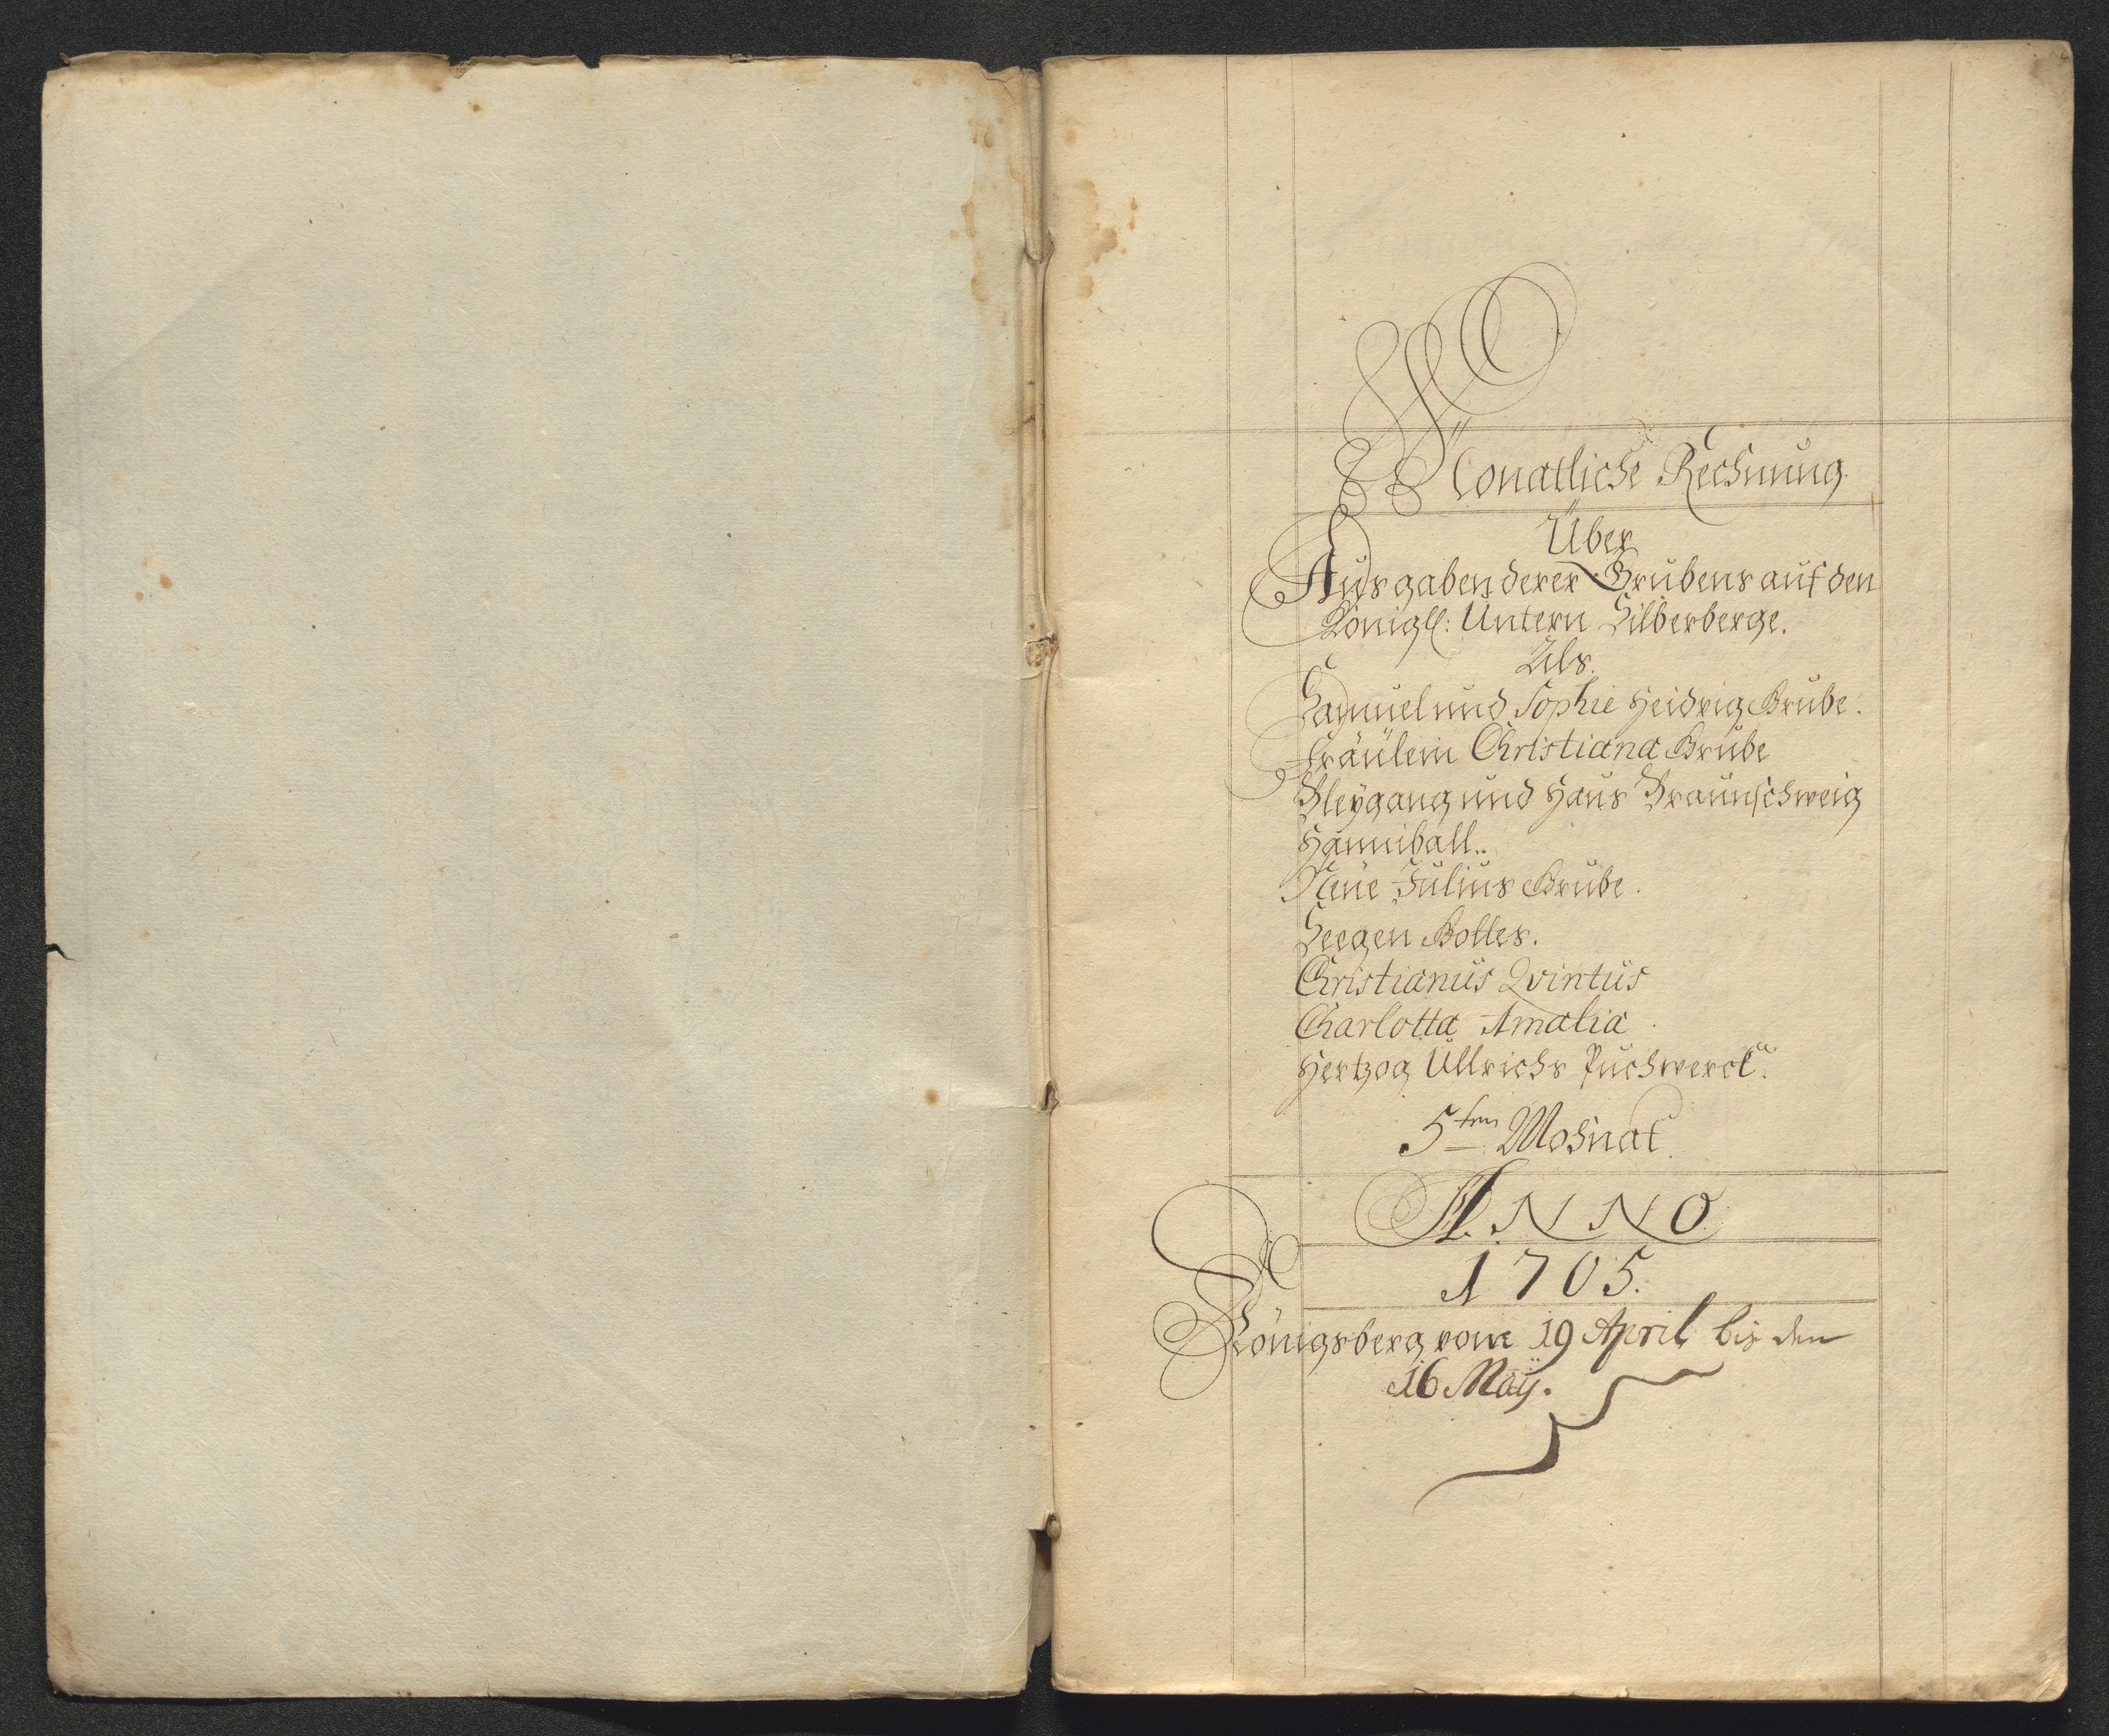 Monatliche Rechnung.
Über
Ausgaben derer Grubens auf den
Königll: Untern Silberberge.
Als.
Samuel und Sophie Heidvig Grube.
Fräulein Christiana Grube
Bleygang und Haus Braunschweig
Hanniball..
Neue Julius Grube.
Seegen Gottes.
Christianus Qvintus
Charlotta Amalia.
Hertzog Ullrichs Puchwerck.
5ten Mohnat.
ANNO
1705.
Königsberg vom 19 April bis den
16 Maÿ.